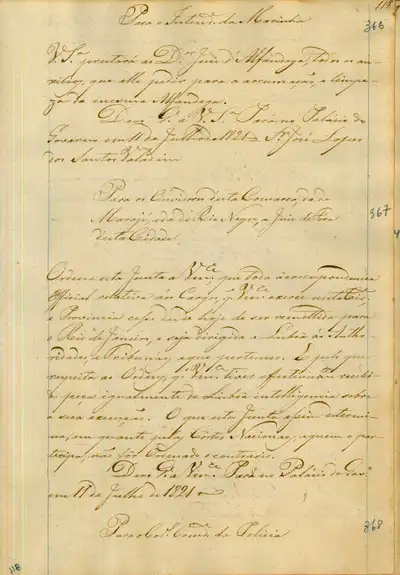 118
Para o Intend.e da Marinha
366
V. S.ª prestará ao D.or Juiz d'Alfandega, todos os au-
xilios, que elle pedir para a arrumação, e limpe-
za da mesma Alfandega.
Deos G.e a V. S.ª Pará no Palacio do
Governo em 11 de Julho de 1821 Sr. José Lopes
dos Santos Valadim
Para os Ouvidores desta Comarca, da de
Marajó, e da do Rio Negro, e Juiz de Fóra
desta Cidade
367
Ordena esta Junta a V.mce que toda a correspondencia
Official relativa aos Cargos, q. V.mce exerce nesta
e Provincia cesse desde hoje de ser remettida para
o Rio de Janeiro, e seja dirigida a Lisboa ás Autho-
ridades, e Tribunaes, a que pertencer. E pelo que
respeita as Ordens, q. V.mce tiver effectivamente recebi-
do, peça igualmente de Lisboa intelligencia sobre
a sua execução. O que esta Junta assim determi-
na, em quanto pelas Cortes Nacionaes, a quem o par-
ticipa, não fôr Ordenado o contrario.
Deos G.e a V.mce Pará no Palacio do Gov.o
em 11 de Julho de 1821
Para o Cor.el Comd.e da Policia
368
118